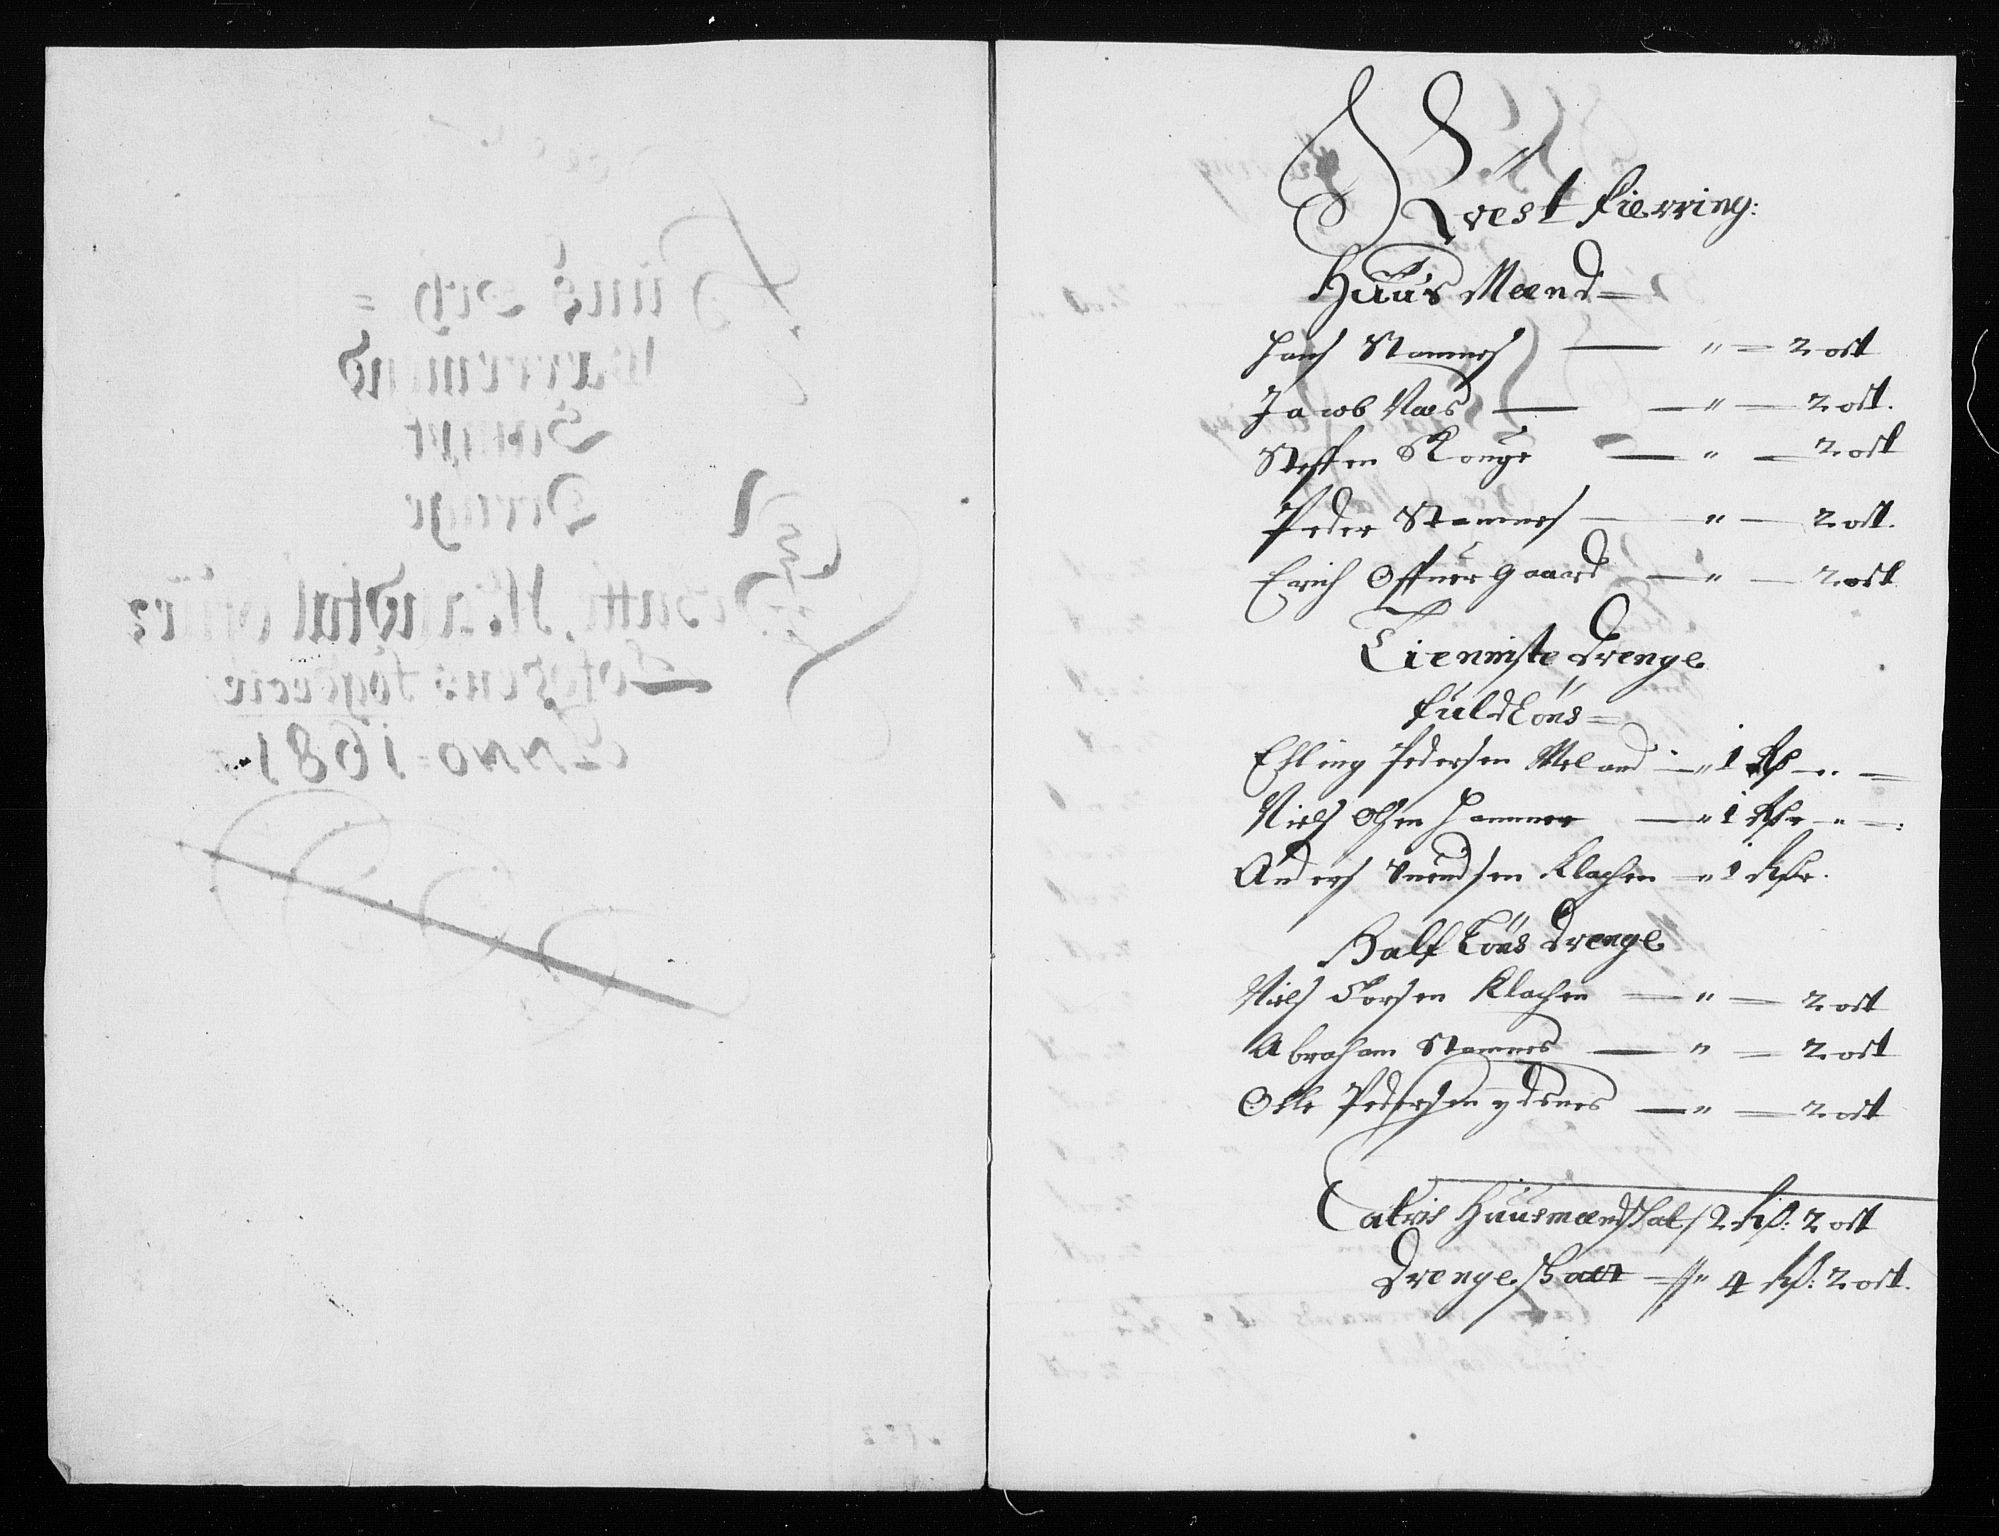 West fierring:
Huus Mænd
Hans Stamnes — " — 2 ort
Jacob Næs — " — 2 ort.
Steffen Skouge — " — 2 ort
Peder Stamnes — " — 2 ort.
Erich Offuer gaard — " — 2 ort
Tienniste Drenge
fuldlöns
Elling Pedersen Meland — " 1 Rdr — " —
Niels Olsen Hammer — " 1 Rdr — " —
Anders Suendsen Klachen — " 1 Rdr.
Half Löns Drenge
Niels Torsen Klachen — " — 2 ort
Abraham Stamnes — " — 2 ort
Olle Pedersen ydsnes — " — 2 ort
Latris Huusmændskat / 2 Rdr: 2 ort
Drenge skatt — " 4 Rdr: 2 ort.